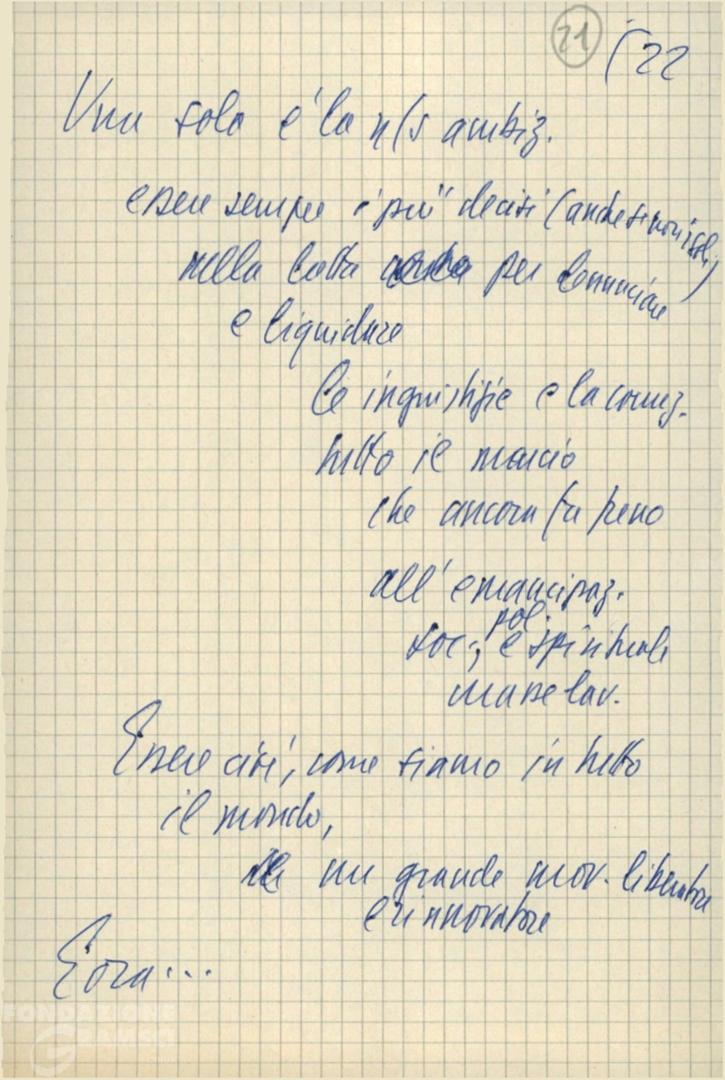 21 22
Una sola è la n/s ambiz.
essere sempre i più decisi (anche se non i soli)
nella lotta per denunciare
e liquidare
le ingiustizie e la corruz.
tutto il marcio
che ancora fa freno
all'emancipaz.
pol.
soc., e spirituale
masse lav.
Essere così, come siamo in tutto
il mondo,
un grande mov. liberatore
e rinnovatore
E ora...
FONDAZIONE
GRAMSCI